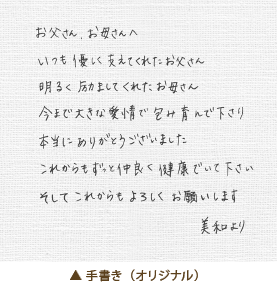 お父さん、お母さんへ
いつも優しく支えてくれたお父さん
明るく励ましてくれたお母さん
今まで大きな愛情で包み育んで下さり
本当にありがとうございました
これからもずっと仲良く健康でいて下さい
そしてこれからもよろしくお願いします
美和より
▲ 手書き（オリジナル）